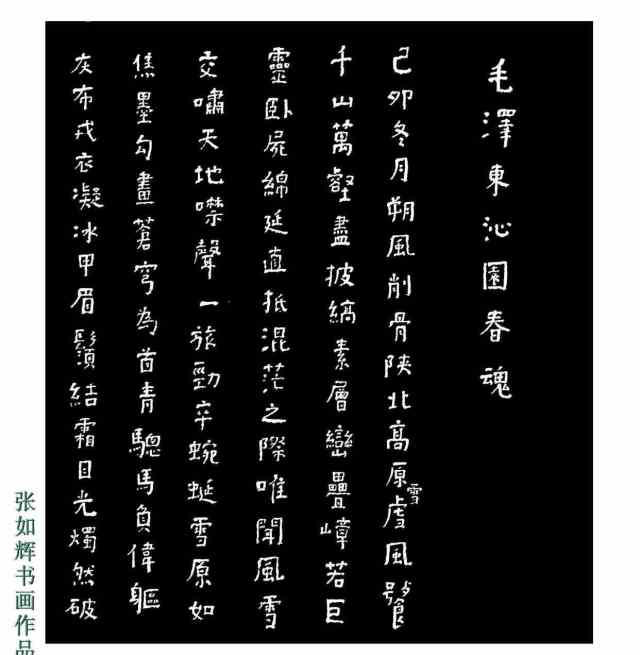 毛澤東沁園春魂
己卯冬月朔風削骨陝北高原雪虐風饕
千山萬壑盡披縞素層巒疊嶂若巨
靈卧屍綿延直抵混茫之際唯聞風雪
交嘯天地噤聲一旅勁卒蜿蜒雪原如
焦墨勾畫蒼穹為首青驄馬負偉軀
灰布戎衣凝冰甲眉鬚結霜目光燭然破
张如辉书画作品